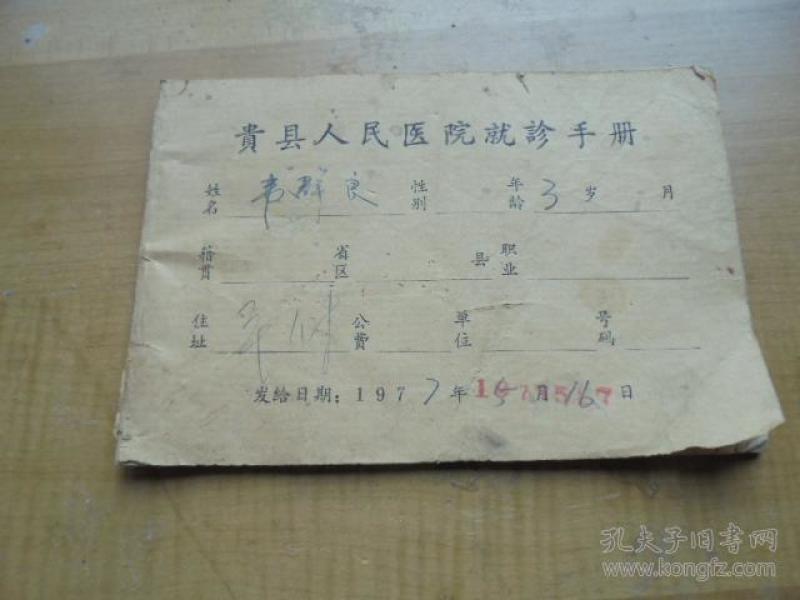 貴县人民医院就診手册
姓名 韦群良 性别 年龄 3 岁 月
籍贯 省区 县 职业
住址 公费 单位 号码
发给日期：1977年 5月16日
孔夫子旧书网
www.kongfz.com